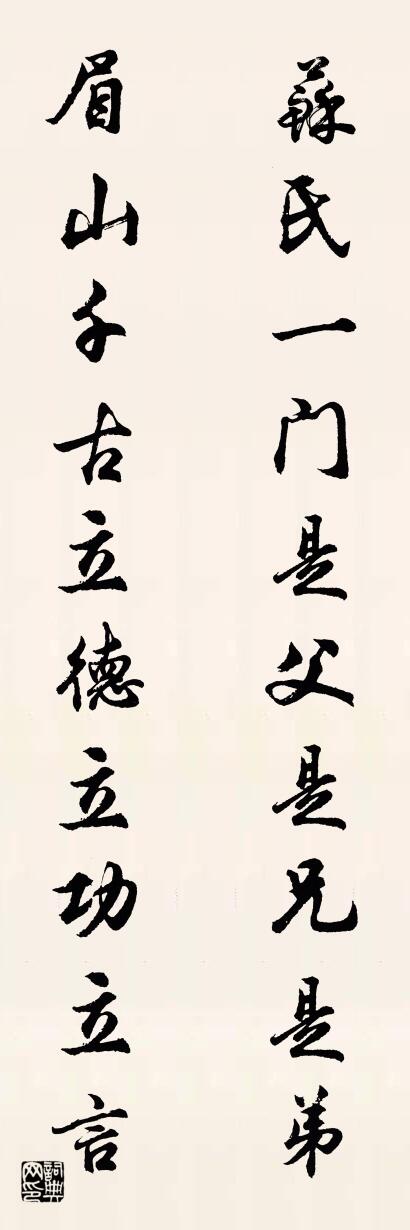 蘇氏一门是父是兄是弟
眉山千古立德立功立言
詞典网印